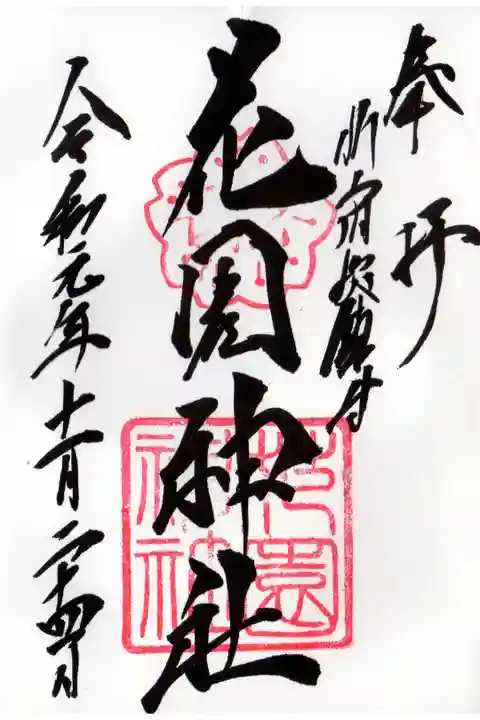 奉拝
新宿総鎮守
花園神社
花園
神社
令和元年十一月二十四日